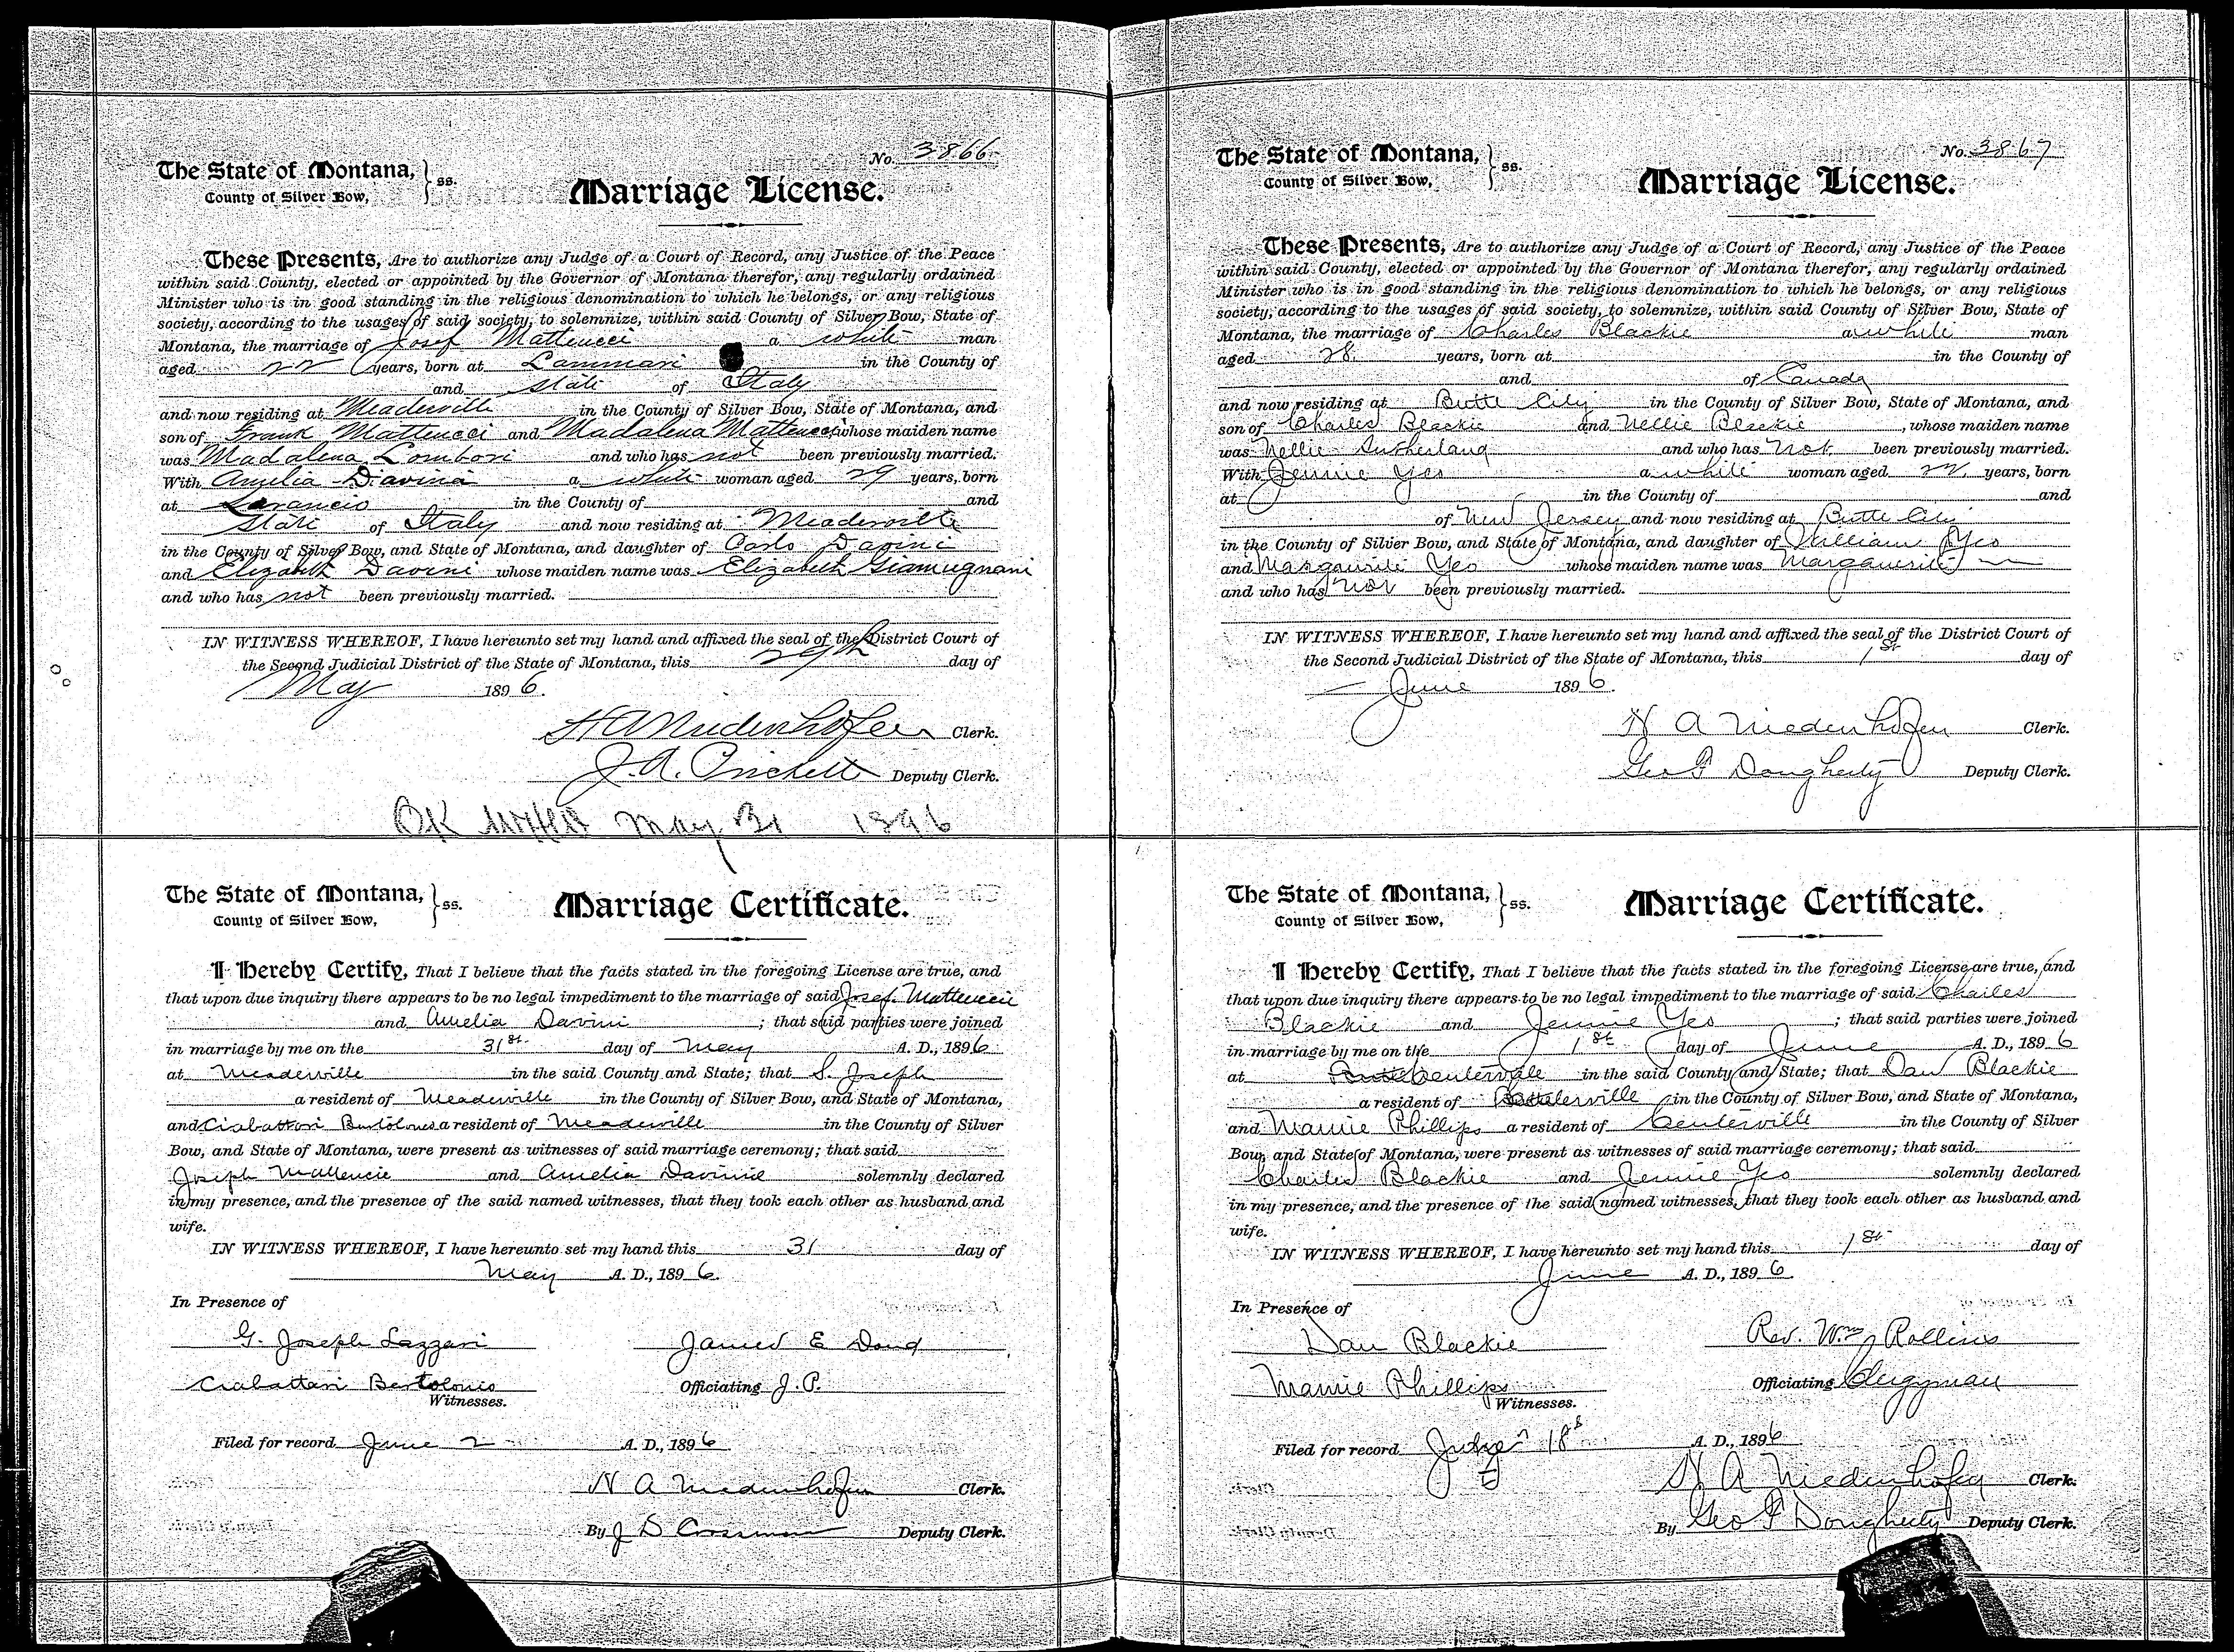 No. 3866
The State of Montana, } ss.
County of Silver Bow,
Marriage License.
These Presents, Are to authorize any Judge of a Court of Record, any Justice of the Peace
within said County, elected or appointed by the Governor of Montana therefor, any regularly ordained
Minister who is in good standing in the religious denomination to which he belongs, or any religious
society, according to the usages of said society, to solemnize, within said County of Silver Bow, State of
Montana, the marriage of Josef Matteucci a white man
aged 22 years, born at Lammari in the County of
and state of Italy
and now residing at Meaderville in the County of Silver Bow, State of Montana, and
son of Frank Matteucci and Madalena Matteucci, whose maiden name
was Madalena Lombori and who has not been previously married.
With Amelia Davina a white woman aged 29 years, born
at Lorancio in the County of and
state of Italy and now residing at Meaderville
in the County of Silver Bow, and State of Montana, and daughter of Carlo Davini
and Elizabeth Davini whose maiden name was Elizabeth Giamugnani
and who has not been previously married.
IN WITNESS WHEREOF, I have hereunto set my hand and affixed the seal of the District Court of
the Second Judicial District of the State of Montana, this 29th day of
May 1896.
H A Niedenhofen Clerk.
J. A. Prichett Deputy Clerk.
OK May 31 1896
The State of Montana, } ss.
County of Silver Bow,
Marriage Certificate.
I Hereby Certify, That I believe that the facts stated in the foregoing License are true, and
that upon due inquiry there appears to be no legal impediment to the marriage of said Josef Matteucci
and Amelia Davini ; that said parties were joined
in marriage by me on the 31st day of May A. D., 1896
at Meaderville in the said County and State; that S. Joseph
a resident of Meaderville in the County of Silver Bow, and State of Montana,
and Ciabattari Bertolones a resident of Meaderville in the County of Silver
Bow, and State of Montana, were present as witnesses of said marriage ceremony; that said
Joseph Mattencie and Amelia Davinie solemnly declared
in my presence, and the presence of the said named witnesses, that they took each other as husband and
wife.
IN WITNESS WHEREOF, I have hereunto set my hand this 31 day of
May A. D., 1896.
In Presence of
G. Joseph Lazzari James E Doud
Ciabattari Bertolonis Officiating J. P.
Witnesses.
Filed for record June 2 A. D., 1896
H A Niedenhofen Clerk.
By J D Crossman Deputy Clerk.
No. 3867
The State of Montana, } ss.
County of Silver Bow,
Marriage License.
These Presents, Are to authorize any Judge of a Court of Record, any Justice of the Peace
within said County, elected or appointed by the Governor of Montana therefor, any regularly ordained
Minister who is in good standing in the religious denomination to which he belongs, or any religious
society, according to the usages of said society, to solemnize, within said County of Silver Bow, State of
Montana, the marriage of Charles Blackie a white man
aged 28 years, born at in the County of
and of Canada
and now residing at Butte City in the County of Silver Bow, State of Montana, and
son of Charles Blackie and Nellie Blackie, whose maiden name
was Nellie Sutherland and who has not been previously married.
With Jennie Yeo a white woman aged 22 years, born
at in the County of and
of New Jersey and now residing at Butte City
in the County of Silver Bow, and State of Montana, and daughter of William Yeo
and Marguirite Yeo whose maiden name was Marguerite
and who has not been previously married.
IN WITNESS WHEREOF, I have hereunto set my hand and affixed the seal of the District Court of
the Second Judicial District of the State of Montana, this 1st day of
June 1896.
H A Niedenhofen Clerk.
Geo P Dougherty Deputy Clerk.
The State of Montana, } ss.
County of Silver Bow,
Marriage Certificate.
I Hereby Certify, That I believe that the facts stated in the foregoing License are true, and
that upon due inquiry there appears to be no legal impediment to the marriage of said Charles
Blackie and Jennie Yeo ; that said parties were joined
in marriage by me on the 1st day of June A. D., 1896
at Centervale in the said County and State; that Dan Blackie
a resident of Centerville in the County of Silver Bow, and State of Montana,
and Mamie Phillips a resident of Centerville in the County of Silver
Bow, and State of Montana, were present as witnesses of said marriage ceremony; that said
Charles Blackie and Jennie Yeo solemnly declared
in my presence, and the presence of the said named witnesses, that they took each other as husband and
wife.
IN WITNESS WHEREOF, I have hereunto set my hand this 1st day of
June A. D., 1896.
In Presence of
Dan Blackie Rev. Wm J Rollins
Mamie Phillips Officiating Clergyman
Witnesses.
Filed for record July 18 A. D., 1896
H A Niedenhofen Clerk.
By Geo P Dougherty Deputy Clerk.